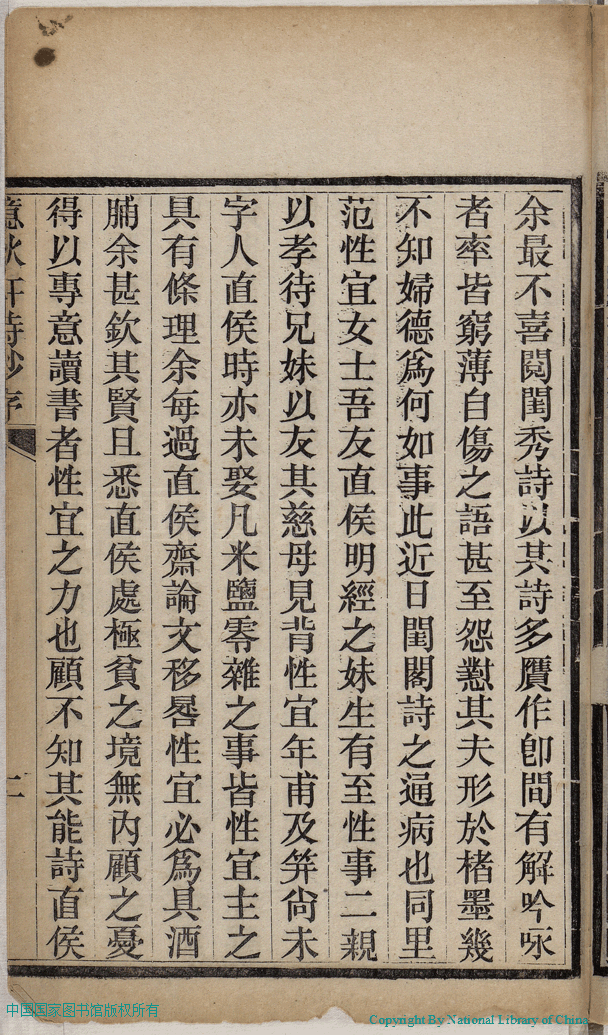 余最不喜閱閨秀詩以其詩多贋作卽間有解吟咏
者率皆窮薄自傷之語甚至怨懟其夫形於楮墨幾
不知婦德爲何如事此近日閨閣詩之通病也同里
范性宜女士吾友直侯明經之妹生有至性事二親
以孝待兄妹以友其慈母見背性宜年甫及笄尙未
字人直侯時亦未娶凡米鹽零雜之事皆性宜主之
具有條理余每過直侯齋論文移晷性宜必爲具酒
脯余甚欽其賢且悉直侯處極貧之境無內顧之憂
得以專意讀書者性宜之力也顧不知其能詩直侯
憶秋軒詩鈔 序
二
中国国家图书馆版权所有
Copyright By National Library of China